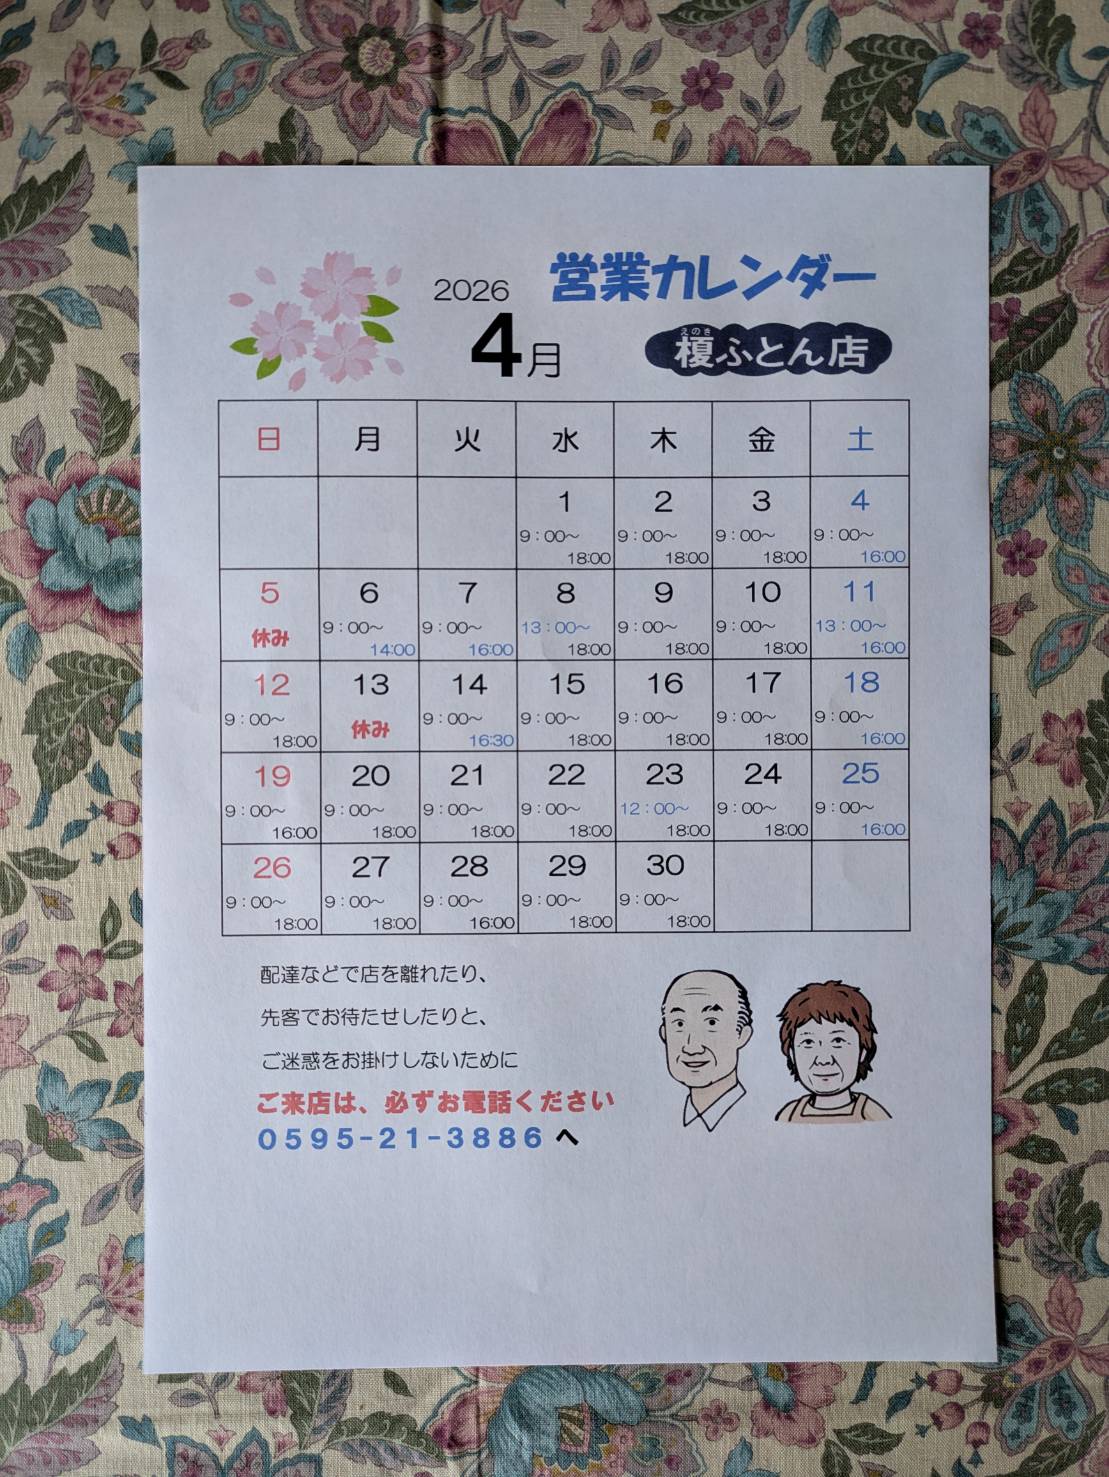 2026
4月
営業カレンダー
えのき
榎ふとん店
日 月 火 水 木 金 土
1 2 3 4
9:00～ 9:00～ 9:00～ 9:00～
18:00 18:00 18:00 16:00
5 6 7 8 9 10 11
休み 9:00～ 9:00～ 13:00～ 9:00～ 9:00～ 13:00～
14:00 16:00 18:00 18:00 18:00 16:00
12 13 14 15 16 17 18
9:00～ 休み 9:00～ 9:00～ 9:00～ 9:00～ 9:00～
18:00 16:30 18:00 18:00 18:00 16:00
19 20 21 22 23 24 25
9:00～ 9:00～ 9:00～ 9:00～ 12:00～ 9:00～ 9:00～
16:00 18:00 18:00 18:00 18:00 18:00 16:00
26 27 28 29 30
9:00～ 9:00～ 9:00～ 9:00～ 9:00～
18:00 18:00 16:00 18:00 18:00
配達などで店を離れたり、
先客でお待たせしたりと、
ご迷惑をお掛けしないために
ご来店は、必ずお電話ください
0595-21-3886 へ